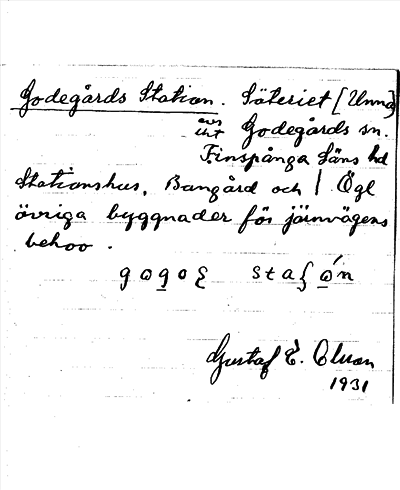 Godegårds Station. Säteriet [Unna]
avs Godegårds sn.
Finspånga läns hd
Stationshus, Bangård och | Ögl
övriga byggnader för järnvägens
behov.
Gustaf E.
1931